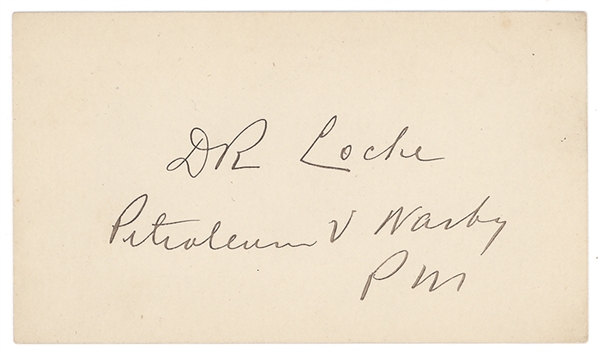 DR Locke
Petroleum V Nasby
PM